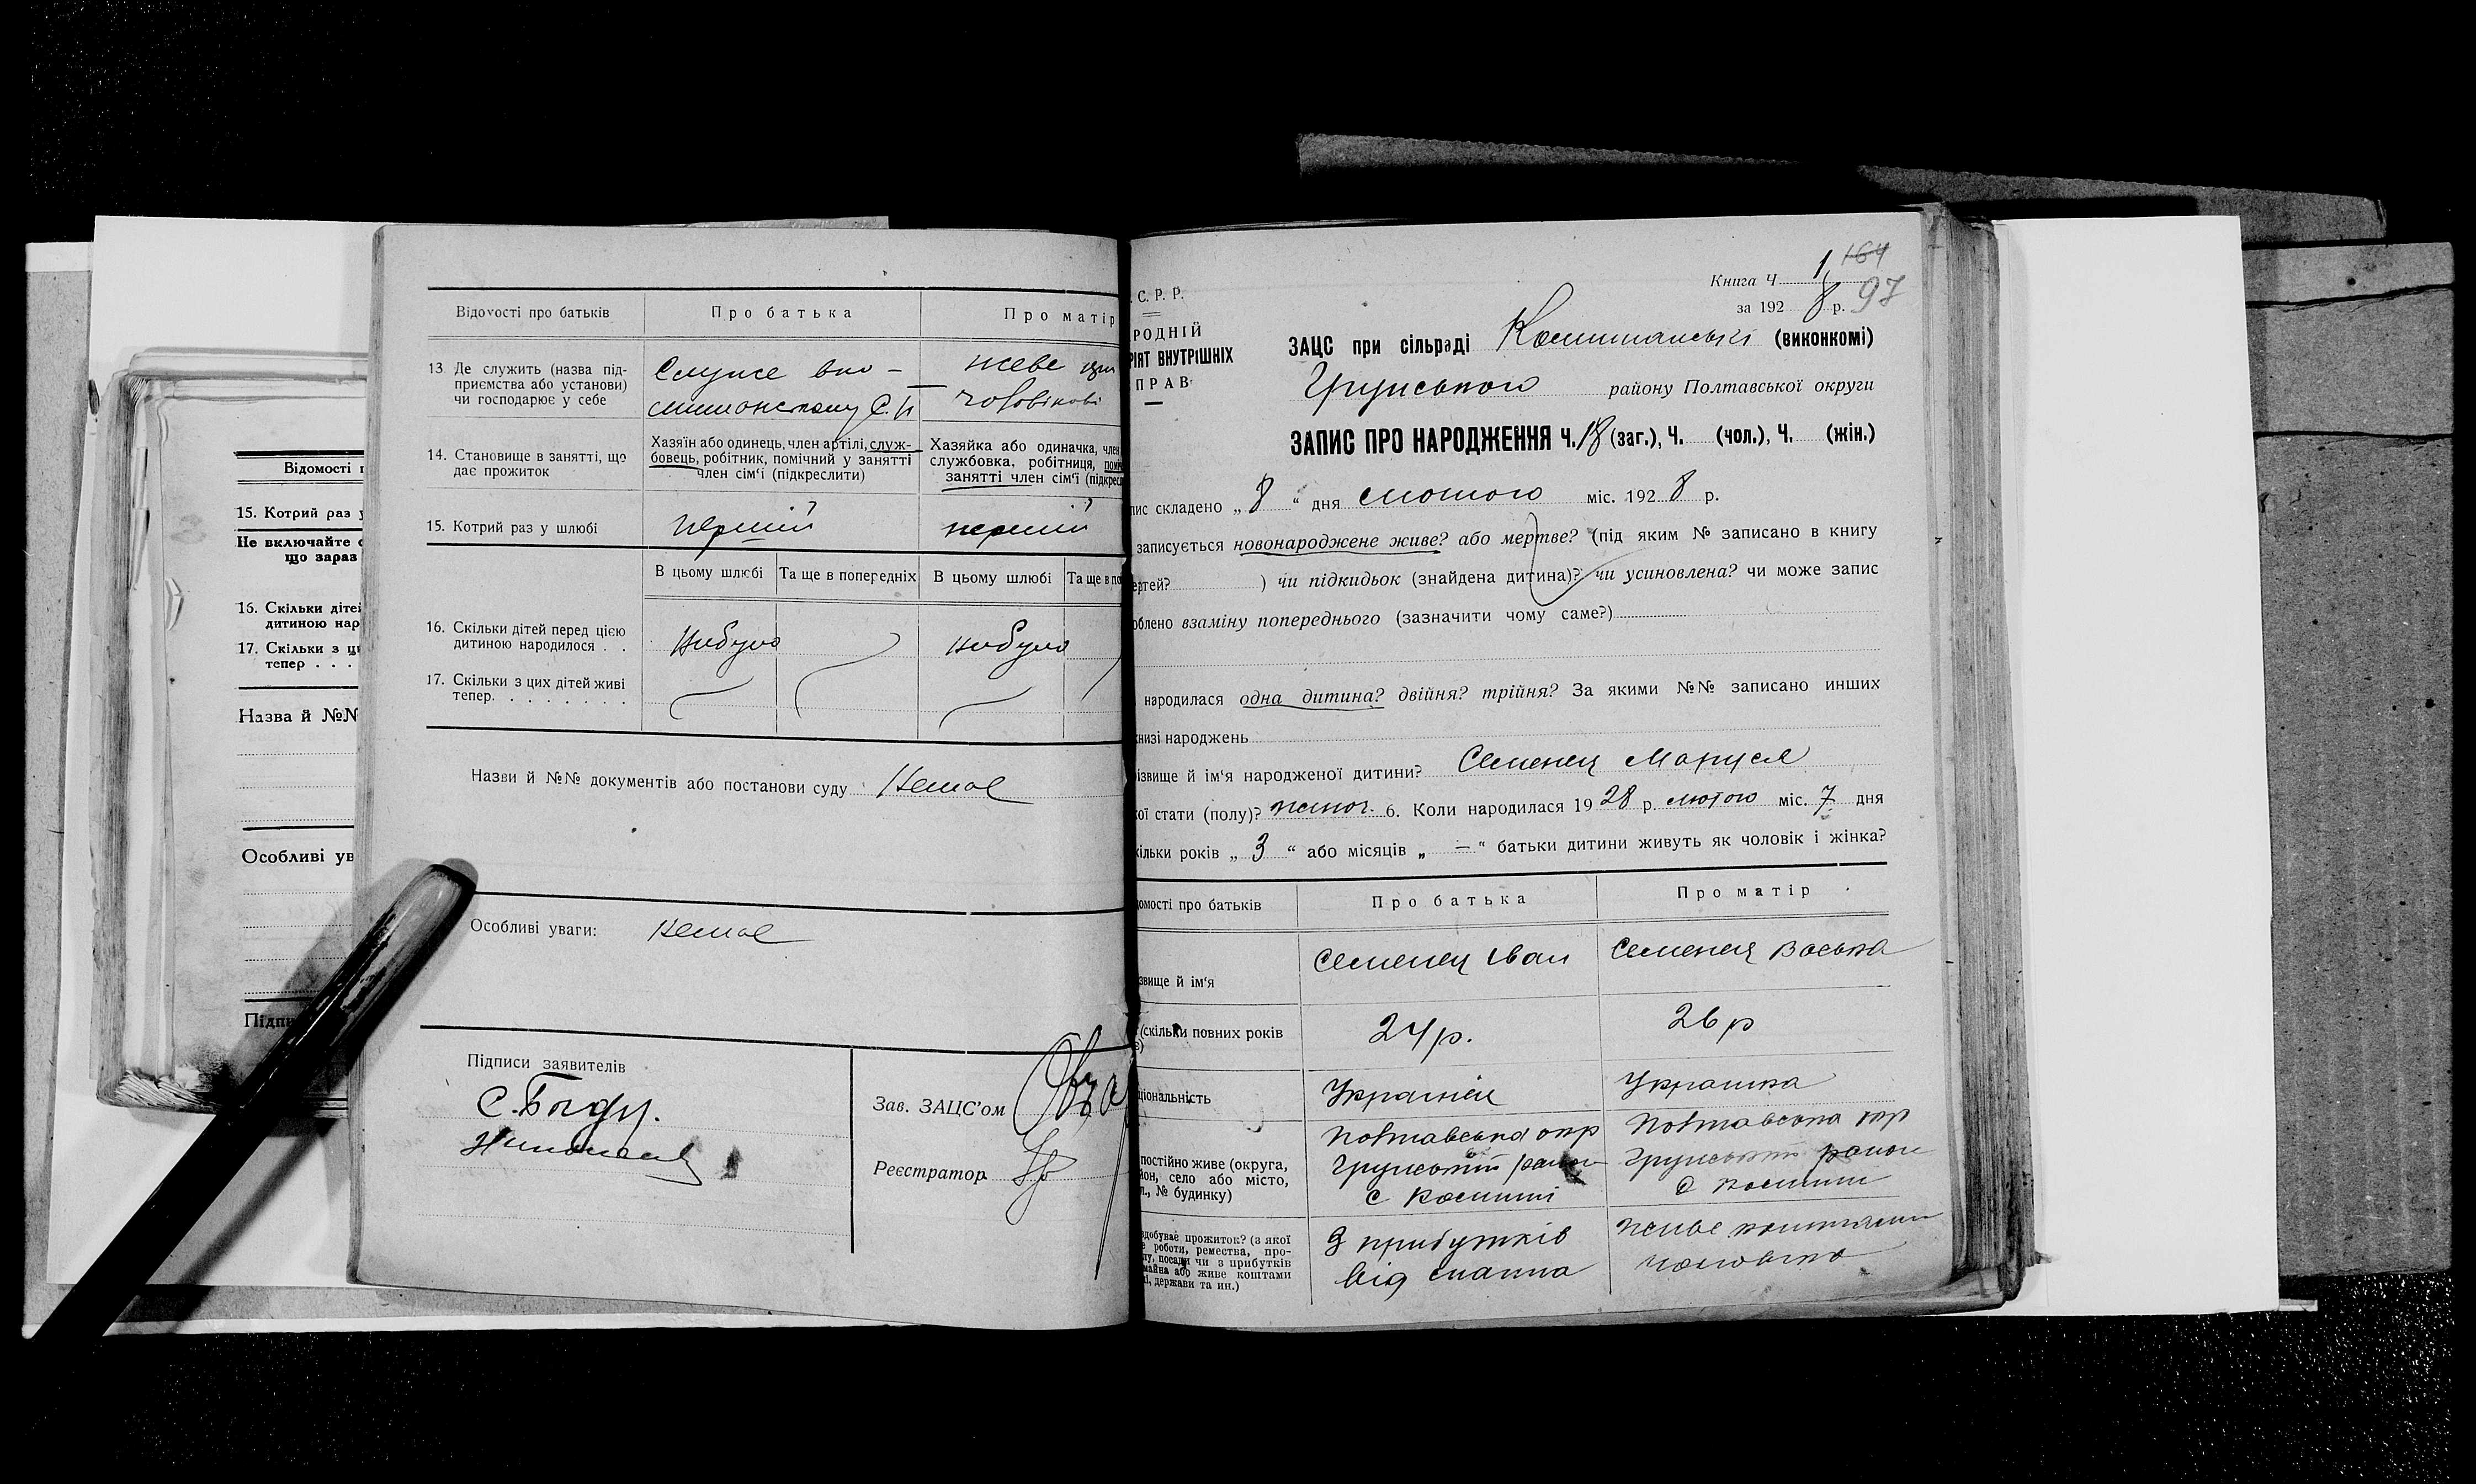 Відомості п
15. Котрий раз у
Не включайте с
що зараз
16. Скільки дітей
дитиною нар
17. Скільки з ци
тепер . . .
Назва й №№
Особливі ув
Підпи
Відомості про батьків Про батька Про матір
13. Де служить (назва під-
приємства або установи)
чи господарює у себе
Служе
живе при
чоловікові
14. Становище в занятті, що
дає прожиток
Хазяїн або одинець, член артілі, служ-
бовець, робітник, помічний у занятті
член сім'ї (підкреслити)
Хазяйка або одиначка, член
службовка, робітниця, поміч
занятті член сім'ї (підкресл
15. Котрий раз у шлюбі перший перший
В цьому шлюбі Та ще в попередніх В цьому шлюбі Та ще в по
16. Скільки дітей перед цією
дитиною народилося . .
небуло небуло
17. Скільки з цих дітей живі
тепер. . . . . . . .
Назви й №№ документів або постанови суду Немає
Особливі уваги: Немає
Підписи заявителів
Зав. ЗАЦС'ом
Реєстратор
164
Книга Ч. 1
97
за 1928 р.
. С. Р. Р.
РОДНІЙ
РІЯТ ВНУТРІШНІХ
ПРАВ
ЗАЦС при сільраді (виконкомі)
Грунського району Полтавської округи
ЗАПИС ПРО НАРОДЖЕННЯ Ч. 18 (заг.), Ч. (чол.), Ч. (жін.)
пис складено „ 8 “ дня лютого міс. 1928 р.
записується новонароджене живе? або мертве? (під яким № записано в книгу
ертей? ) чи підкидьок (знайдена дитина)? чи усиновлена? чи може запис
облено взаміну попереднього (зазначити чому саме?)
народилася одна дитина? двійня? трійня? За якими №№ записано инших
книзі народжень
різвище й ім'я народженої дитини? Семенец Маруся
кої стати (полу)? жіноч. 6. Коли народилася 1928 р. лютого міс. 7 дня
кільки років „ 3 “ або місяців „ — “ батьки дитини живуть як чоловік і жінка?
домості про батьків Про батька Про матір
звище й ім'я
Семенец Іван Семенец Васька
(скільки повних років
24 р. 26 р
ціональність
Українец Українка
постійно живе (округа,
йон, село або місто,
л., № будинку)
Полтавська окр
Грунський район
с
Полтавська окр
Грунський район
с
здобуває прожиток? (з якої
е роботи, ремества, про-
лу, посади чи з прибутків
майна або живе коштами
і, держави та ин.)
З прибутків
від
живе коштами
чоловіка